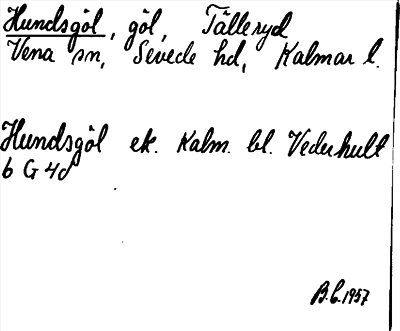 Hundsgöl, göl, Tälleryd
Vena sn, Sevede hd, Kalmar l.
Hundsgöl ek. Kalm. bl. Vederhult
6 G 4d
B.C. 1957